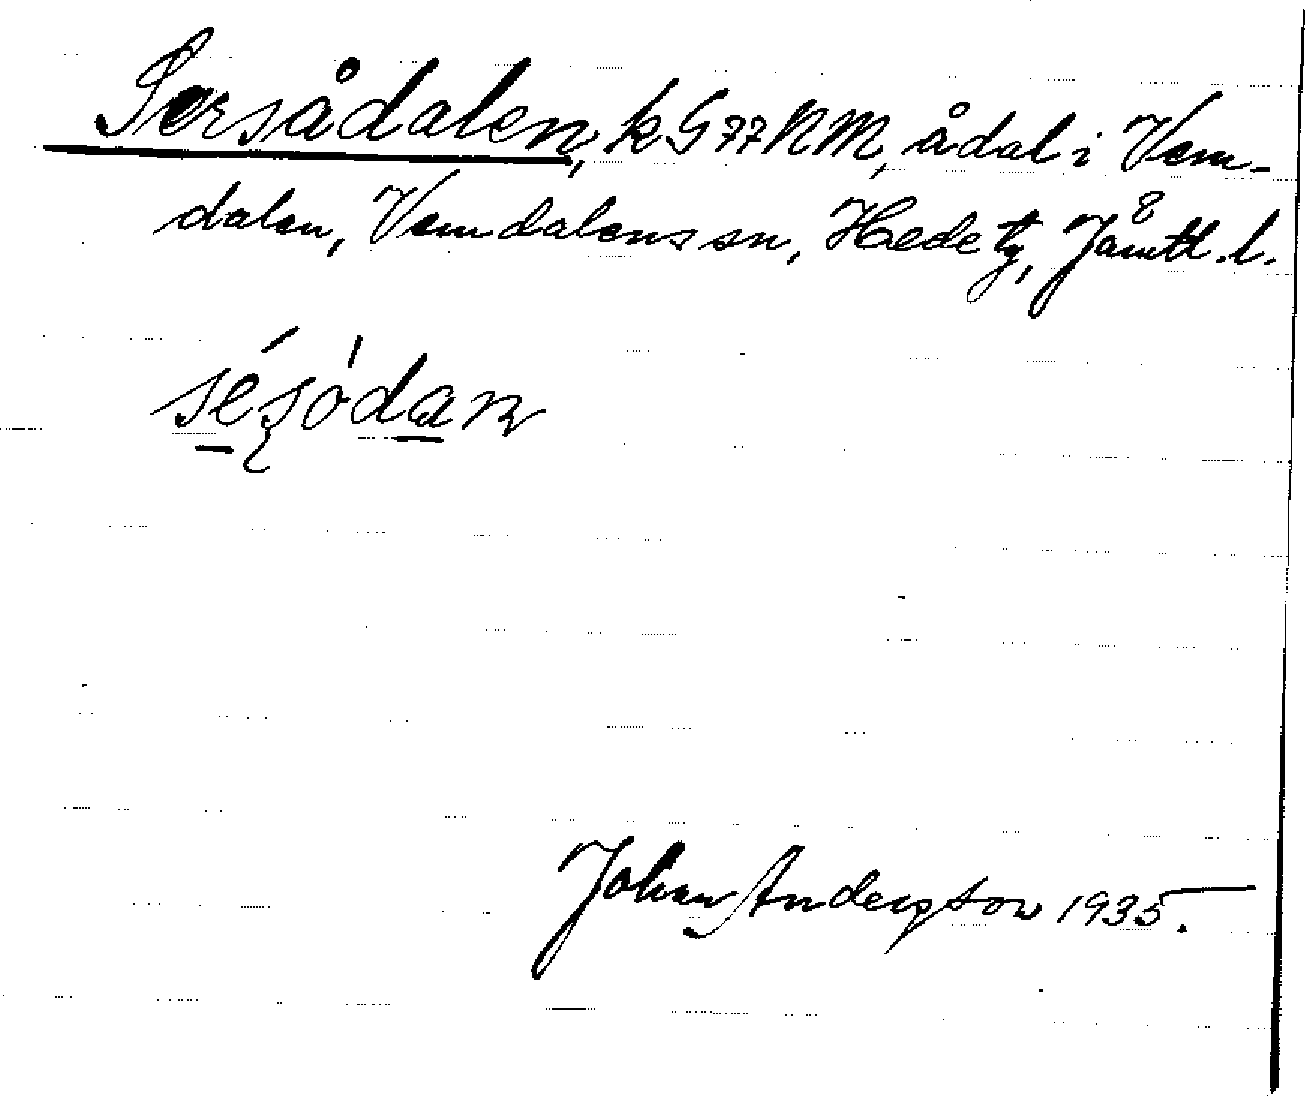 Sersådalen, k G77NM, ådal i Vem-
dalen, Vemdalens sn, Hede tg, Jämtl. l.
Johan Andersson 1935.